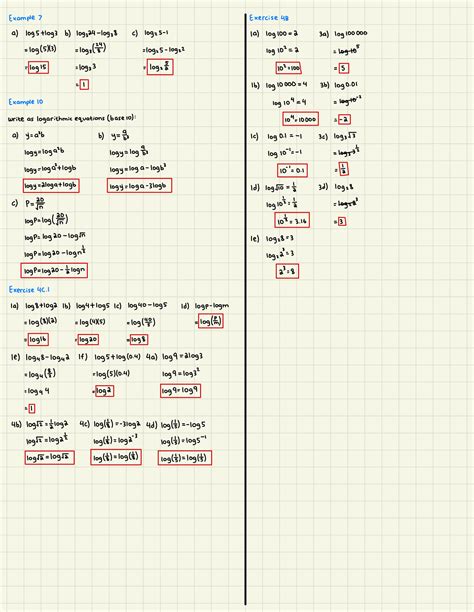 Example 7
a) log5+log3 b) log₃24-log₃8 c) log₂5-1
=log(5)(3) =log₃(24/8) =log₂5-log₂2
=log15 =log₃3 =log₂5/2
=1
Example 10
write as logarithmic equations (base 10):
a) y=a²b b) y=a/b³
logy=loga²b logy=loga/b³
logy=loga²+logb logy=loga-logb³
logy=2loga+logb logy=loga-3logb
c) P=20/√n
logP=log(20/√n)
logP=log20-log√n
logP=log20-logn^½
logP=log20-½logn
Exercise 4C.1
1a) log8+log2 1b) log4+log5 1c) log40-log5 1d) logp-logm
=log(8)(2) =log(4)(5) =log(40/5) =log(p/m)
=log16 =log20 =log8
1e) log₄8-log₄2 1f) log5+log(0.4) 4a) log9=2log3
=log₄(8/2) =log(5)(0.4) log9=log3²
=log₄4 =log2 log9=log9
=1
4b) log√2=½log2 4c) log(⅛)=-3log2 4d) log(⅕)=-log5
log√2=log2^½ log(⅛)=log2⁻³ log(⅕)=log5⁻¹
log√2=log√2 log(⅛)=log(⅛) log(⅕)=log(⅕)
Exercise 4B
1a) log100=2 3a) log100000
log10²=2 =log10⁵
10²=100 =5
1b) log10000=4 3b) log0.01
log10⁴=4 =log10⁻²
10⁴=10000 =-2
1c) log0.1=-1 3c) log₃√3
log10⁻¹=-1 =log₃3^½
10⁻¹=0.1 =½
1d) log√10=½ 3d) log₂8
log10^½=½ =log₂2³
10^½=3.16 =3
1e) log₂8=3
log₂2³=3
2³=8